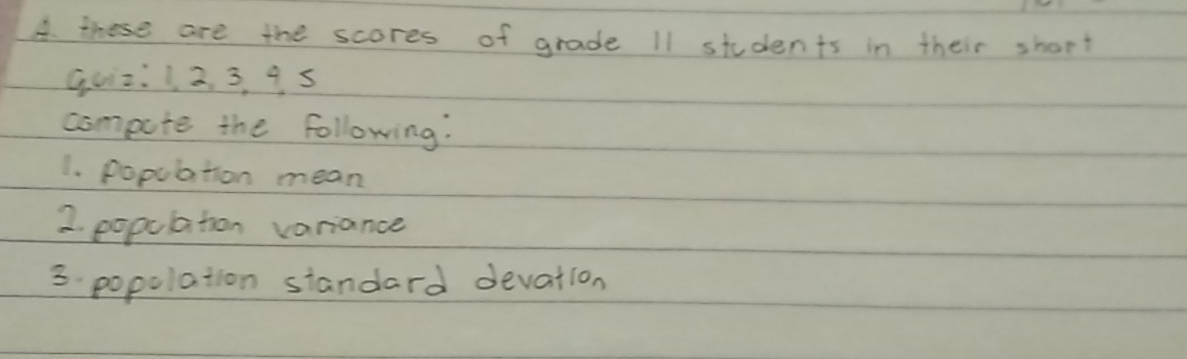 A. these are the scores of grade 11 students in their short
Quiz: 1, 2, 3, 9, 5
compute the following:
1. population mean
2. population variance
3. population standard devation